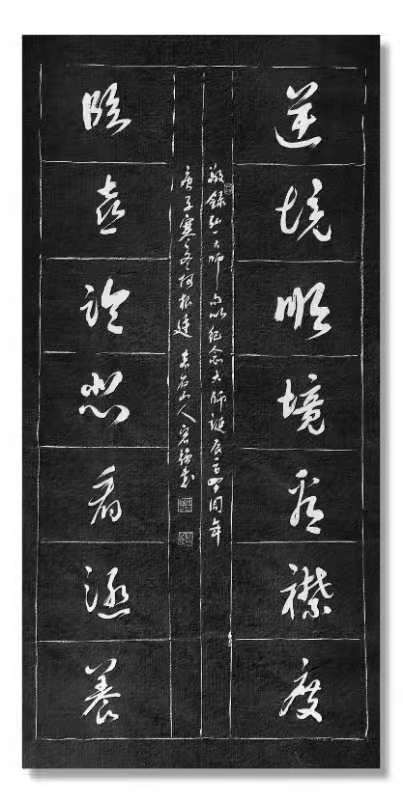 逆境順境看襟度
敬錄弘一大師句以紀念大師誕辰百四十周年
庚子寒冬何根廷 山人
臨喜臨怒看涵養